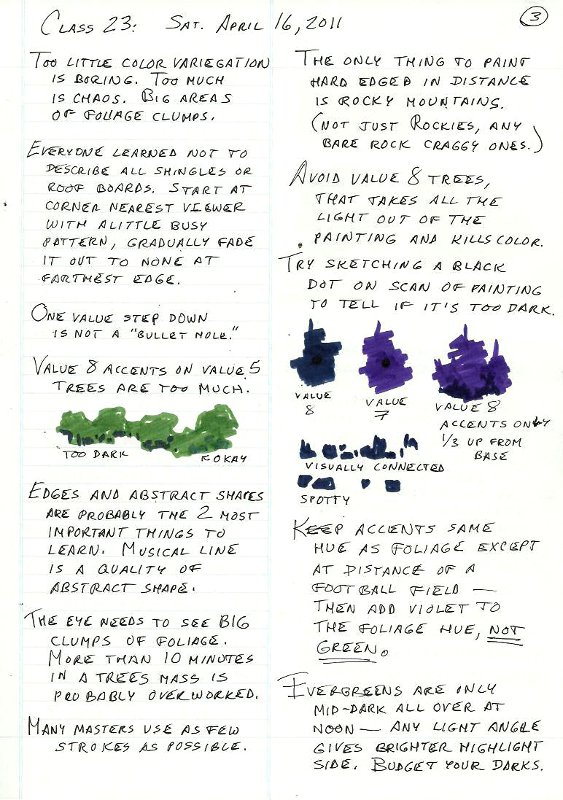 CLASS 23: SAT. APRIL 16, 2011
3
TOO LITTLE COLOR VARIEGATION
IS BORING. TOO MUCH
IS CHAOS. BIG AREAS
OF FOLIAGE CLUMPS.
EVERYONE LEARNED NOT TO
DESCRIBE ALL SHINGLES OR
ROOF BOARDS. START AT
CORNER NEAREST VIEWER
WITH A LITTLE BUSY
PATTERN, GRADUALLY FADE
IT OUT TO NONE AT
FARTHEST EDGE.
ONE VALUE STEP DOWN
IS NOT A "BULLET HOLE."
VALUE 8 ACCENTS ON VALUE 5
TREES ARE TOO MUCH.
TOO DARK
OKAY
EDGES AND ABSTRACT SHAPES
ARE PROBABLY THE 2 MOST
IMPORTANT THINGS TO
LEARN. MUSICAL LINE
IS A QUALITY OF
ABSTRACT SHAPE.
THE EYE NEEDS TO SEE BIG
CLUMPS OF FOLIAGE.
MORE THAN 10 MINUTES
IN A TREES MASS IS
PROBABLY OVERWORKED.
MANY MASTERS USE AS FEW
STROKES AS POSSIBLE.
THE ONLY THING TO PAINT
HARD EDGED IN DISTANCE
IS ROCKY MOUNTAINS.
(NOT JUST ROCKIES, ANY
BARE ROCK CRAGGY ONES.)
AVOID VALUE 8 TREES,
THAT TAKES ALL THE
LIGHT OUT OF THE
PAINTING AND KILLS COLOR.
TRY SKETCHING A BLACK
DOT ON SCAN OF PAINTING
TO TELL IF IT'S TOO DARK.
VALUE
8
VALUE
7
VALUE 8
ACCENTS ONLY
1/3 UP FROM
BASE
VISUALLY CONNECTED
SPOTTY
KEEP ACCENTS SAME
HUE AS FOLIAGE EXCEPT
AT DISTANCE OF A
FOOTBALL FIELD —
THEN ADD VIOLET TO
THE FOLIAGE HUE, NOT
GREEN.
EVERGREENS ARE ONLY
MID-DARK ALL OVER AT
NOON — ANY LIGHT ANGLE
GIVES BRIGHTER HIGHLIGHT
SIDE. BUDGET YOUR DARKS.